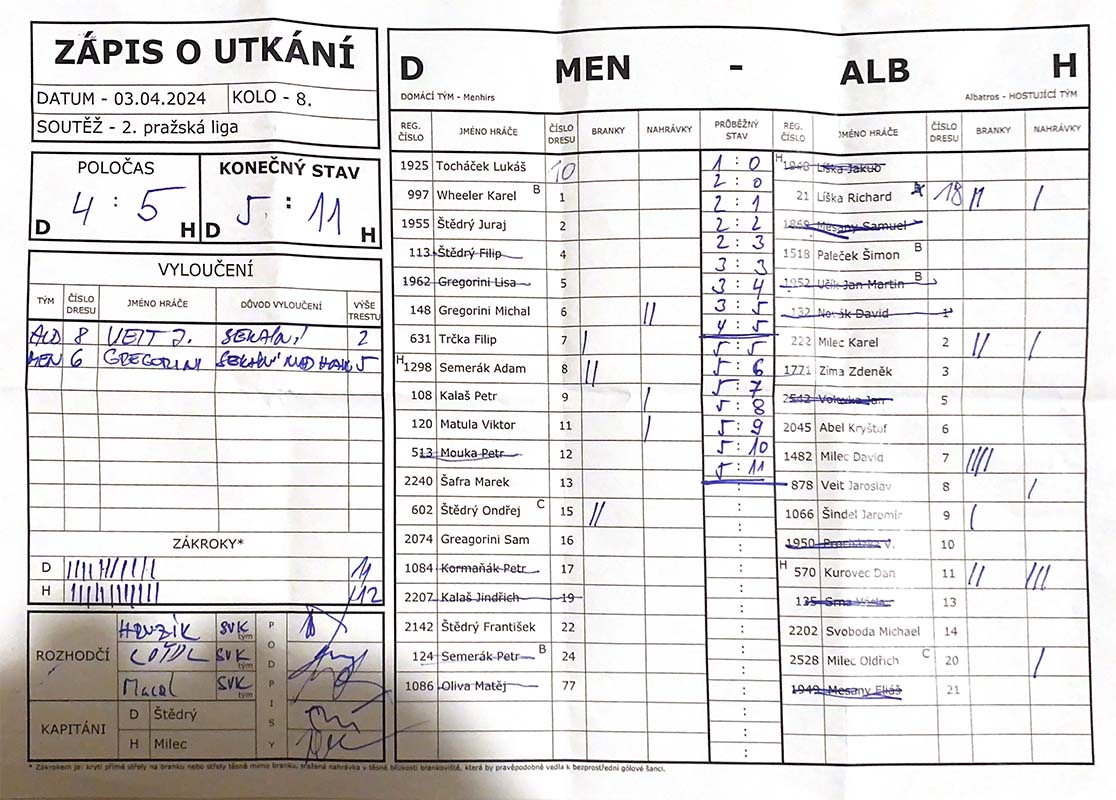 ZÁPIS O UTKÁNÍ
DATUM - 03.04.2024 KOLO - 8.
SOUTĚŽ - 2. pražská liga
POLOČAS
4 : 5
D H
KONEČNÝ STAV
5 : 11
D H
VYLOUČENÍ
TÝM ČÍSLO DRESU JMÉNO HRÁČE DŮVOD VYLOUČENÍ VÝŠE TRESTU
8 VEIT J. SEKÁNÍ 2
MEN 6 GREGORINI SEKÁNÍ 5
ZÁKROKY*
D 11
H 12
ROZHODČÍ
HRUZÍK SVK tým
SVK tým
SVK tým
PODPISY
KAPITÁNI
D Štědrý
H Milec
D MEN - ALB H
DOMÁCÍ TÝM - Menhirs Albatros - HOSTUJÍCÍ TÝM
REG. ČÍSLO JMÉNO HRÁČE ČÍSLO DRESU BRANKY NAHRÁVKY
1925 Tocháček Lukáš 10
997 Wheeler Karel B 1
1955 Štědrý Juraj 2
113 Štědrý Filip 4
1962 Gregorini Lisa 5
148 Gregorini Michal 6 ||
631 Trčka Filip 7 |
H 1298 Semerák Adam 8 ||
108 Kalaš Petr 9 |
120 Matula Viktor 11 |
513 Mouka Petr 12
2240 Šafra Marek 13
602 Štědrý Ondřej C 15 ||
2074 Greagorini Sam 16
1084 Kormaňák Petr 17
2207 Kalaš Jindřich 19
2142 Štědrý František 22
124 Semerák Petr B 24
1086 Oliva Matěj 77
PRŮBĚŽNÝ STAV
1 : 0
2 : 0
2 : 1
2 : 2
2 : 3
3 : 3
3 : 4
3 : 5
4 : 5
5 : 5
5 : 6
5 : 7
5 : 8
5 : 9
5 : 10
5 : 11
REG. ČÍSLO JMÉNO HRÁČE ČÍSLO DRESU BRANKY NAHRÁVKY
H 1948 Líška Jakub
21 Líška Richard 18 || |
1868 Mesany Samuel
1518 Paleček Šimon B
1952 Učík Jan Martin B
132 Novák David 1
222 Milec Karel 2 || |
1771 Zíma Zdeněk 3
2542 Volevka Jan 5
2045 Abel Kryštof 6
1482 Milec David 7 ||||
878 Veit Jaroslav 8 |
1066 Šindel Jaromír 9 |
1950 Procházka V. 10
H 570 Kurovec Dan 11 || |||
135 Srna 13
2202 Svoboda Michael 14
2528 Milec Oldřich C 20 |
1949 Mesany Eliáš 21
* Zákrokem je: krytí přímé střely na branku nebo střely těsně mimo branku, sražená nahrávka v těsné blízkosti brankoviště, která by pravěpodobně vedla k bezprostřední gólové šanci.